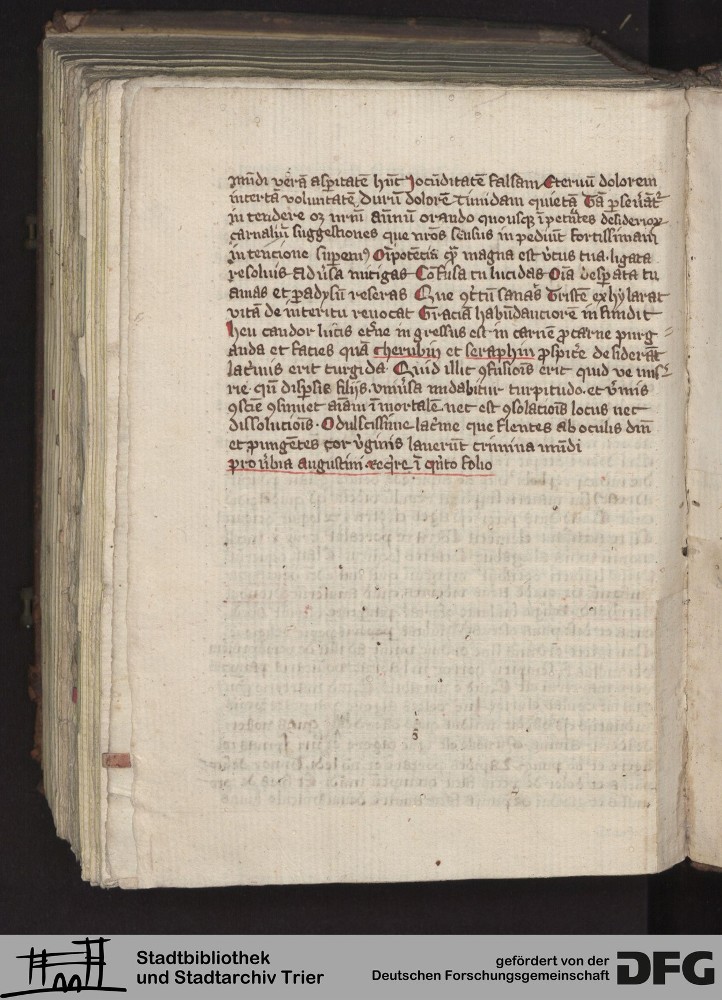 mūdi verā asperitatē hūt Jocūditatē falsam Eternū dolorem
incertā voluntatē durū dolorē timidam quietā
in tendere oƺ nrm̄ animū orando quousqƺ īpetrātes desiderioꝝ
carnaliū suggestiones que nros sensus in pediūt fortissimam
intencione superemꝰ Oīpotētia ꝙ magna est v̓tus tua ligata
resoluis Adūsa mitigas Cōfusa tu lucidas Oīa desꝑata tu
amas et ꝑadysū reseras Que ꝯtͥtū sanas Tristē exhylarat
vitā de interitu reuocat Graciā habūdanciorē infundit
heu candor lucis etͥne in gressus est in carnē ꝓ carne purg
anda et facies quā cherubin et seraphin ꝓspicͥe desiderāt
lacͥmis erit turgida Quid illic ꝯfusiois erit quid ve mis
rie qn̄ dispͥsis filijs vniūsa nudabitur turpitudo et v̓mis
ꝯscīe ꝯsumet aīam īmortalē nec est ꝯsolaciois locus nec
dissolucionis O dulcissime lacͥme que flentes ab oculis dm̄
et ꝓungētes cor v̓ginis lauerūt crimina mūdi
prouͥbia Augustini reqͥre ī qͥnto folio
Stadtbibliothek
und Stadtarchiv Trier
gefördert von der
Deutschen Forschungsgemeinschaft
DFG